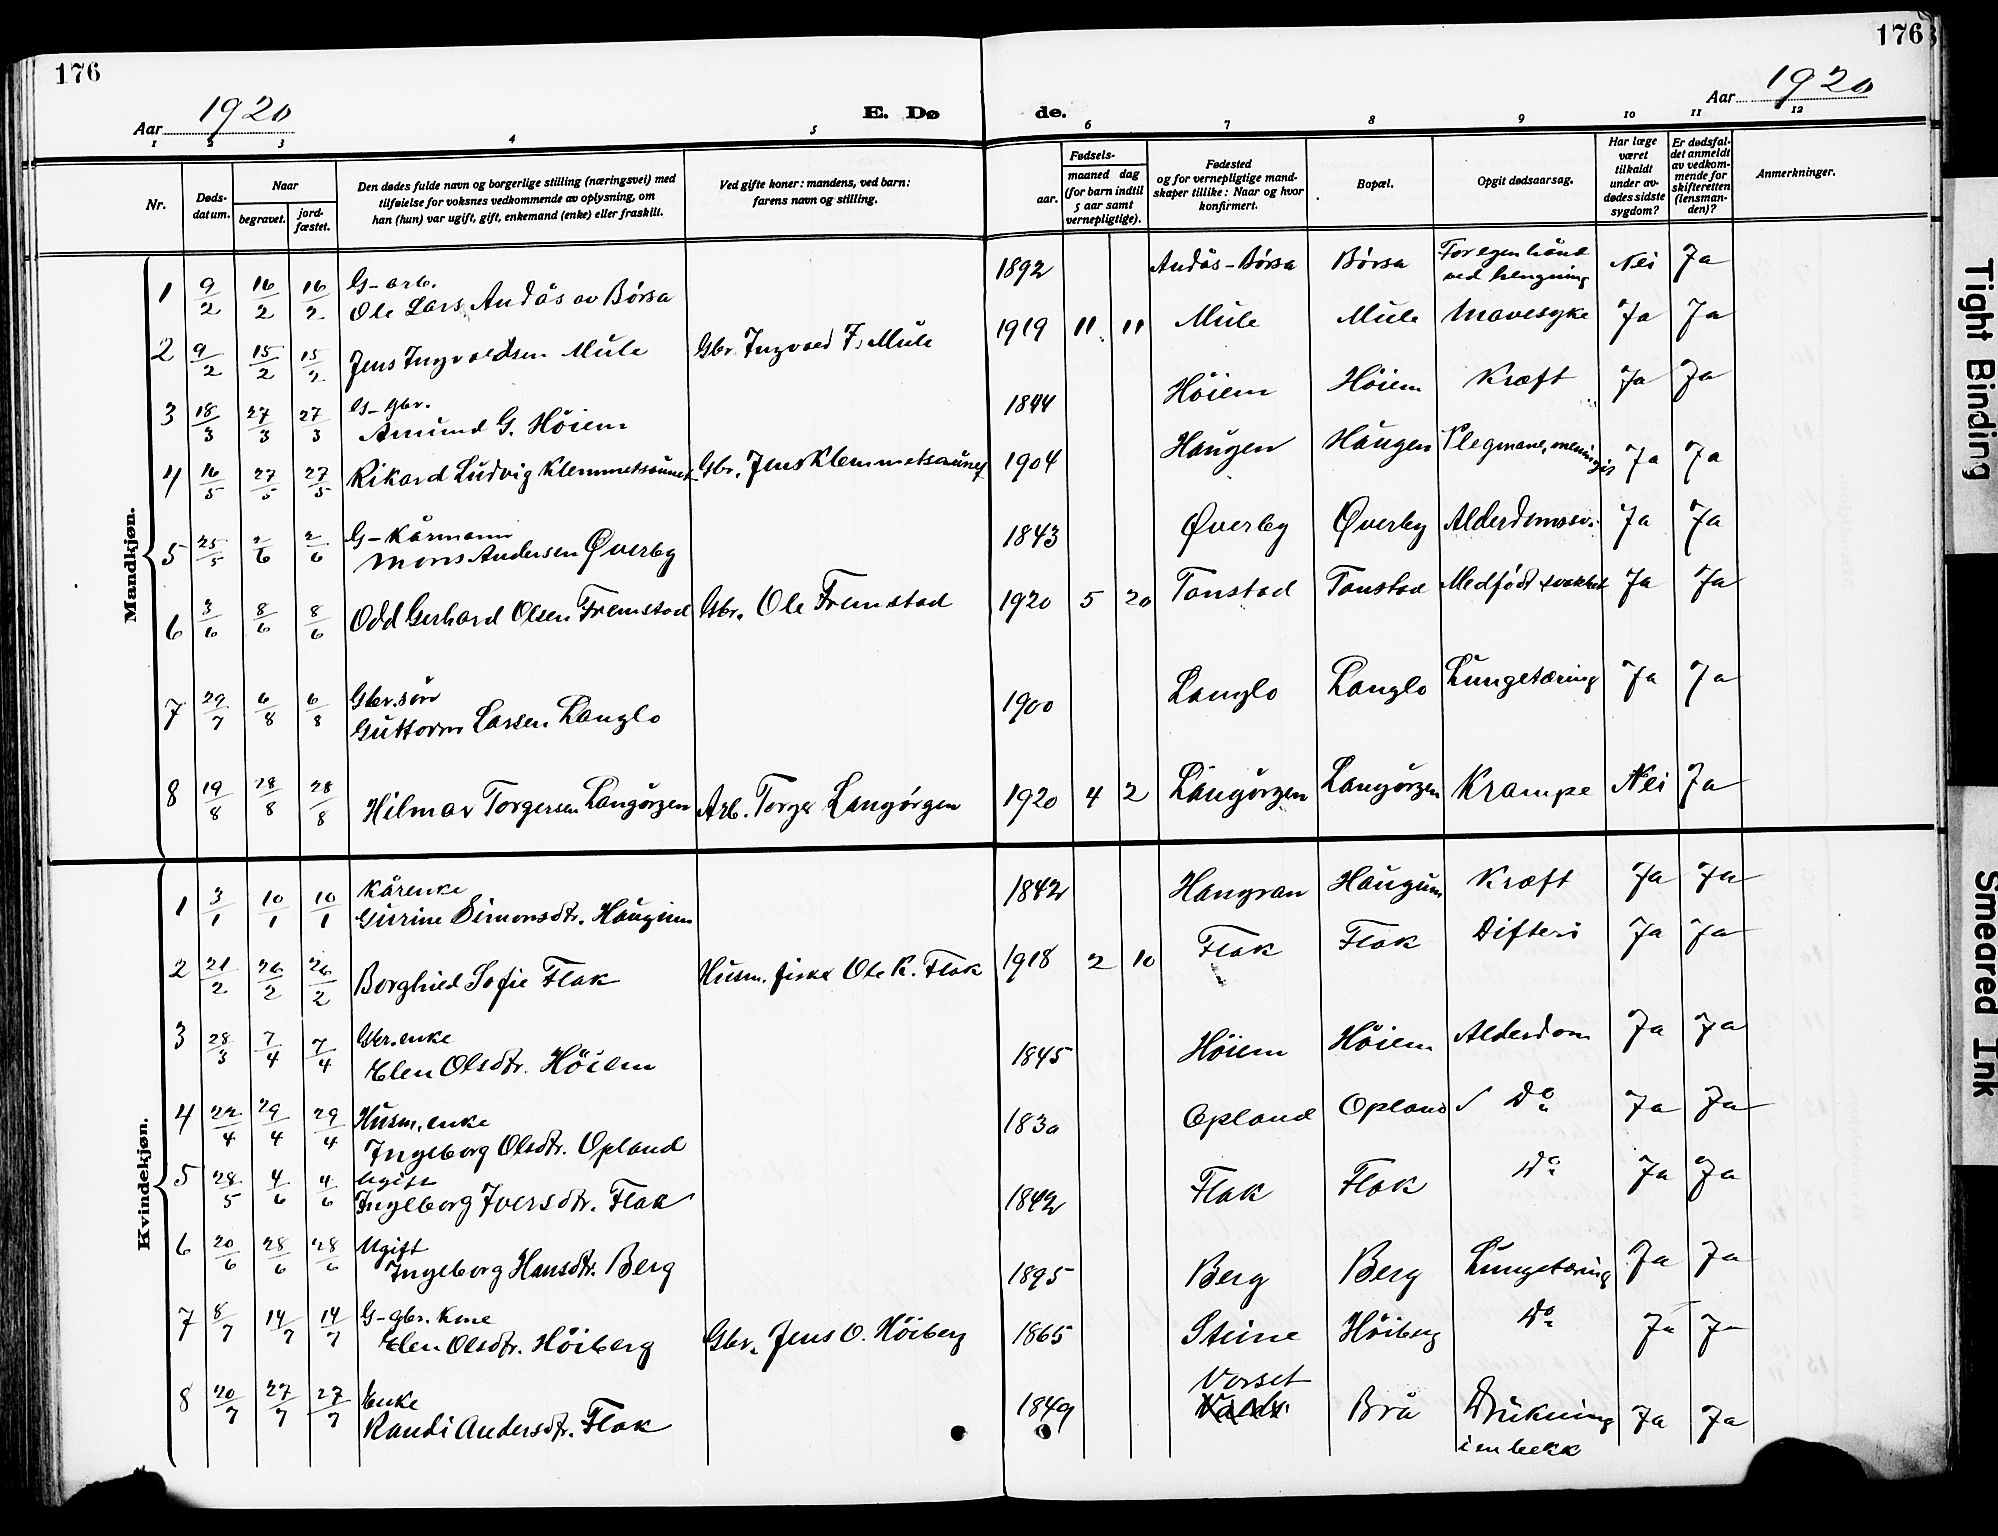 176
176
Aar 1920
E. Dø
de.
Aar 1920
1 2 3 4 5 6 7 8 9 10 11 12
Nr.
Døds-
datum.
Naar
begravet.
jord-
fæstet.
Den dødes fulde navn og borgerlige stilling (næringsvei) med
tilføielse for voksnes vedkommende av oplysning, om
han (hun) var ugift, gift, enkemand (enke) eller fraskilt.
Ved gifte koner: mandens, ved barn:
farens navn og stilling.
Fødsels-
aar.
maaned dag
(for barn indtil
5 aar samt
vernepligtige).
Fødested
og for vernepligtige mand-
skaper tillike: Naar og hvor
konfirmert.
Bopæl.
Opgit dødsaarsag.
Har læge
været
tilkaldt
under av-
dødes sidste
sygdom?
Er dødsfal-
det anmeldt
av vedkom-
mende for
skifteretten
(lensman-
den)?
Anmerkninger.
Mandkjøn.
1 9/2 16/2 16/2 G-arb. Ole Lars. Andås av Børsa 1892 Andås-Børsa Børsa For egen hånd ved hengning Nei Ja
2 9/2 15/2 15/2 Jens Ingvaldsen Mule Gbr. Ingvald F. Mule 1919 11 11 Mule Mule Mavesyke Ja Ja
3 18/3 27/3 27/3 G-gbr. Amund G. Høiem 1844 Høiem Høiem Kræft Ja Ja
4 16/5 27/5 27/5 Rikard Ludvig Klemmetsaunet Gbr. Jens Klemmetsaunet 1904 Haugen Haugen Ja Ja
5 25/5 2/6 2/6 G-Kårmann Mons Andersen Øverby 1843 Øverby Øverby Alderdomssv. Ja Ja
6 3/6 8/6 8/6 Odd Gerhard Olsen Fremstad Gbr. Ole Fremstad 1920 5 20 Tonstad Tonstad Medfødt svakhet Ja Ja
7 29/7 6/8 6/8 Gbr.søn Guttorm Larsen Langlo 1900 Langlo Langlo Lungetæring Ja Ja
8 19/8 28/8 28/8 Hilmar Torgersen Langørgen Arb. Torger Langørgen 1920 4 2 Langørgen Langørgen Krampe Nei Ja
Kvindekjøn.
1 3/1 10/1 10/1 Kårenke Gurine Simonsdtr. Haugum 1842 Hangran Haugum Kræft Ja Ja
2 21/2 26/2 26/2 Borghild Sofie Flak Husm. fisker Ole K. Flak 1918 2 10 Flak Flak Difteri Ja Ja
3 28/3 7/4 7/4 Gbr.enke Elen Olsdtr. Høiem 1845 Høiem Høiem Alderdom Ja Ja
4 22/4 29/4 29/4 Husm.enke Ingeborg Olsdtr. Opland 1830 Opland Opland Do Ja Ja
5 28/5 4/6 4/6 Ugift Ingeborg Iversdtr. Flak 1842 Flak Flak Do Ja Ja
6 20/6 28/6 28/6 Ugift Ingeborg Hansdtr. Berg 1895 Berg Berg Lungetæring Ja Ja
7 8/7 14/7 14/7 G-gbr. Kone Elen Olsdtr. Høiberg Gbr. Jens O. Høiberg 1865 Steine Høiberg Do Ja Ja
8 20/7 27/7 27/7 Enke Randi Andersdtr. Flak 1849 Vorset Brå Drukning i en bekk Ja Ja
Tight Binding
Smeared Ink